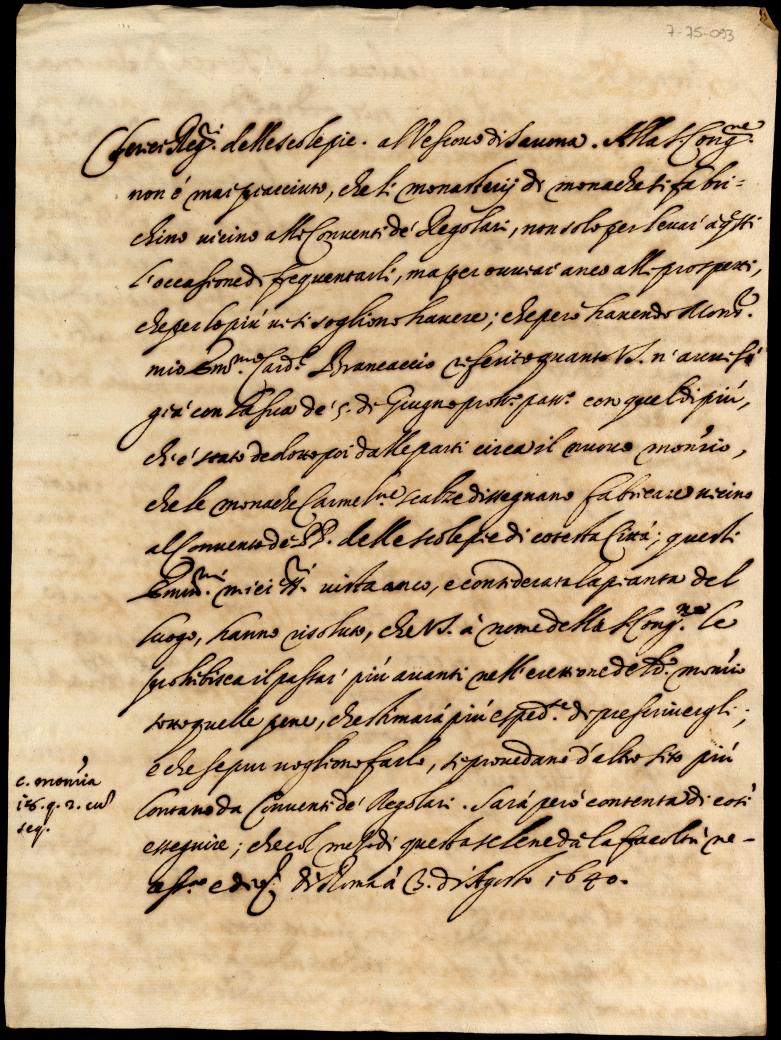 7-75-093
Cherici Reg.ri delle scole pie. al Vescovo di Savona. Alla S. Cong.ne
non é mai piacciuto, che li monasterij di monache si fabri=
chino vicino alli Conventi de' Regolari, non solo per levar' a q̃sti
l'occasione di frequentarli, ma per ovviar' anco alli prospetti,
che per lo più vi si sogliono havere; che però havendo Mons.r
mio Em̃.mo Card.l Brancaccio referito quanto V.S. n'avvisò
già con la sua de' 5. di Giugno pross.o pass.o con quel di più,
ch'é stato dedotto poi dalle parti circa il nuovo mon'rio,
che le monache Carmel.ne scalze dissegnano fabricare vicino
al Convento de' PP. delle scole pie di cotesta Città; questi
Em̃.mi miei SS.ri vista anco, e considerata la pianta del
luogo, hanno risoluto, che V.S. à nome della S. Cong.ne le
prohibisca il passar' più avanti nell'erettione del d.o mon'rio
sotto quelle pene, che stimarà più esped.te di prescrivergli;
e che se pur vogliono farlo, si provedano d'altro sito più
lontano da Conventi de' Regolari. Sarà però contenta di così
esseguire; che col mezo di questa se le ne dà la facoltà ne-
cess.ria e di Roma à 3. di Agosto 1640.
c. mon'ria
18. q. 2. cũ
seq.